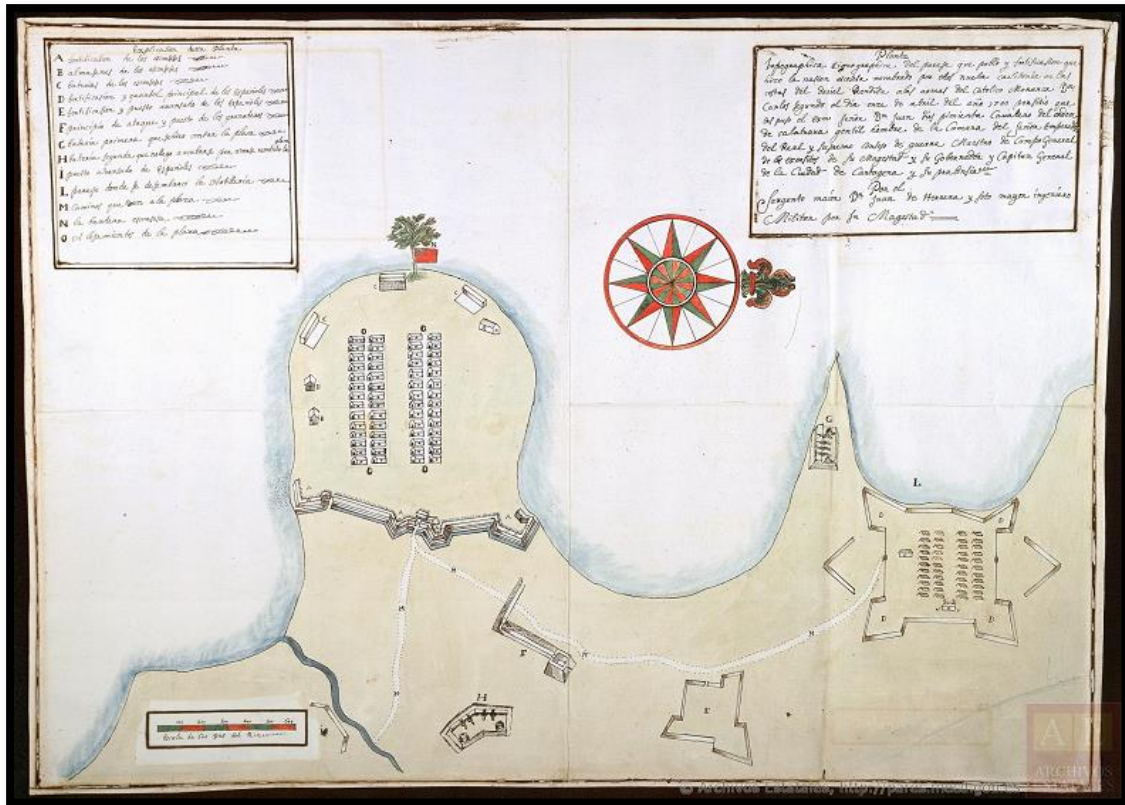 Explicacion desta Planta
A fortificacion de los escoseses
B almasenes de los escoseses
C baterias de los escoseses
D fortificacion y quartel principal de los españoles
E fortificacion y puesto avansado de los Españoles
F principio de ataque y puesto de los
G bateria primera que contra la plaza
H bateria segunda que
I puesto abansado de Españoles
L paraje donde se desembarco la Artilleria
M caminos que van a la plaza
N la bandera escosesa
O alojamientos de la plaza
Planta
Topographica Ignographica del paraje que poblo y fortificasion que
hizo la nasion escosesa nombrado por ellos nueva caledonia en las
costas del Dariel Rendida a las armas del Catolico Monarca Dn
Carlos segundo el dia once de abril del año 1700 por sitio que
les puso el exmo señor Dn Juan dias pimienta Cavallero del orden
de calatrava gentil hombre de la Camara del señor Emperador
del Real y supremo consejo de guerra Maestro de Campo General
de los exersitos de su Magestad y su Gobernador y Capitan General
de la Ciudad de Cartagena y su provinsia
Por el
Sargento maior Dn Juan de Herrera y soto mayor ingeniero
Militar por su Magestad
N
C
C
O
G
B
B
O
O
G
A
A
A
L
D
D
M
M
M
M
D
D
F
M
H
E
Escala de
© Archivos Estatales, http://pares.mcu.
ARCHIVOS